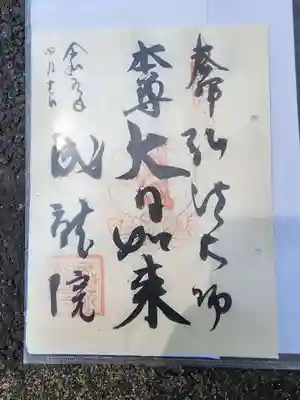 奉 弘法大師
本尊 大日如来
成龍院
令和五年
四月十六日